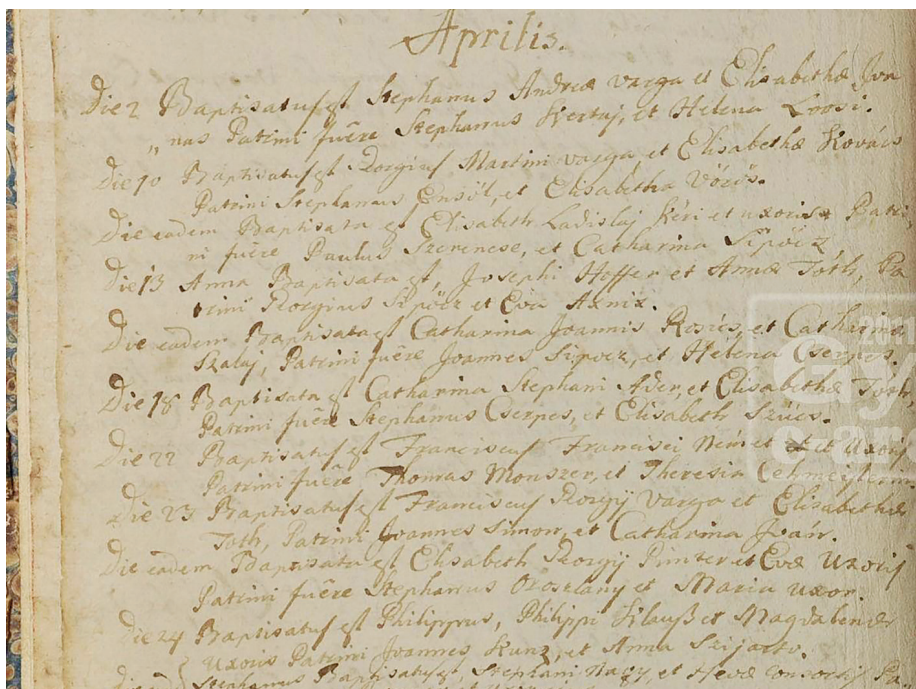 Aprilis.
Die 2 Baptisatus est Stephanus Andreæ Varga et Elisabethæ Iva
„ nas Patrini fuêre Stephanus Kertaj, et Helena Loosi.
Die 10 Baptisatus est Georgius Martini Varga, et Elisabethæ Kovács
Patrini Stephanus et Elisabetha Vörös.
Die eadem Baptisata est Elisabeth Ladislaj Kéri et uxoris Patri,
ni fuêre Paulus Szerencse, et Catharina Sipöcz
Die 13 Anna Baptisata est, Josephi Hoffer et Annæ Toth, Pa
trini Georgius Sipöcz et Eva
Die eadem Baptisata est Catharina Joannis et Catharinæ
Szalaj, Patrini fuêre Joannes Sipocz, et Helena Cserpes.
Die 18 Baptisata est Catharina Stephani Ader, et Elisabethæ Toth,
Patrini fuêre Stephanus Cserpes, et Elisabeth Szücs.
Die 22 Baptisatus est Franciscus Francisci Német et Uxoris
Patrini fuêre Thomas Monszer, et Theresia
Die 23 Baptisatus est Franciscus Georgij Varga et Elisabethæ
Toth, Patrini Joannes Simon, et Catharina Iván.
Die eadem Baptisata est Elisabeth Georgij Pinter et Evæ Uxoris
Patrini fuêre Stephanus Oroszlany et Maria uxor.
Die 24 Baptisatus est Philippus, Philippi Klauß et Magdalenæ
Uxoris Patrini Joannes Kunz, et Anna Szijarto.
Stephanus Baptisatus est, Stephani Nagy, et Hevæ Consortis Pa